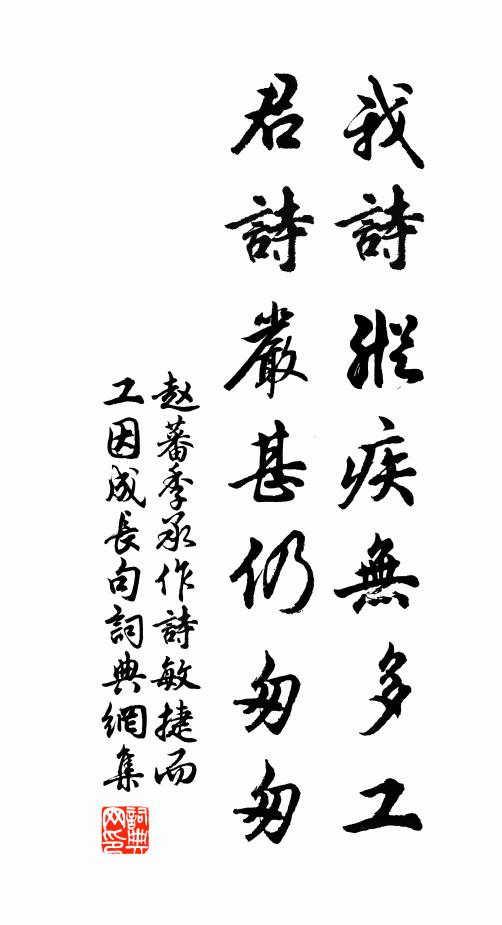 我詩縱疾無多工
君詩嚴甚仍匆匆
赵蕃季承作詩敏捷而
工因成長句詞典網集
詞典
网印